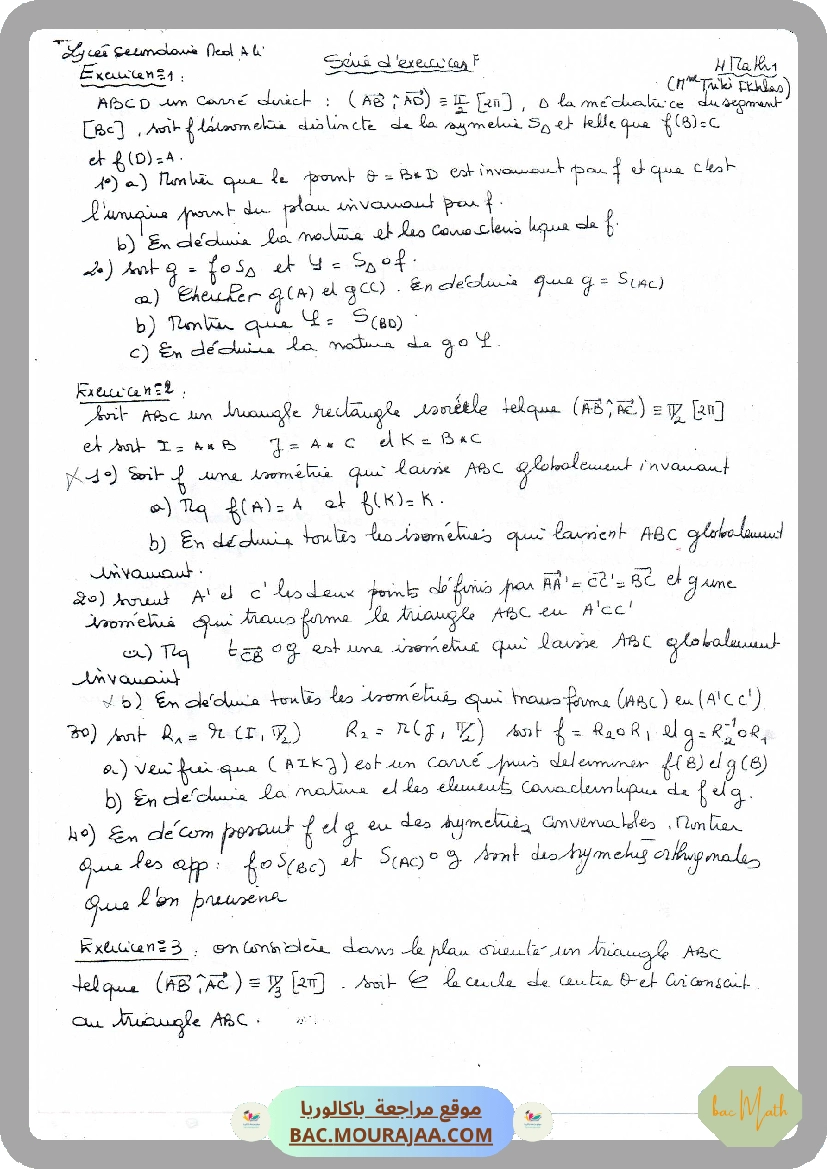 Lycée Secondaire Med Ali
Série d'exercices
4 Maths
(Mme Triki Ikhlas)
Exercice n=1 :
ABCD un carré direct : (AB ^ AD) ≡ π/2 [2π], Δ la médiatrice du segment
[BC], soit f l'isometrie distincte de la symetrie SΔ et telle que f(B)=C
et f(D)=A.
1°) a) Montrer que le point O = B*D est invariant par f et que c'est
l'unique point du plan invariant par f.
b) En déduire la nature et les caractéristique de f.
2°) soit g = foSΔ et φ = SΔof.
a) Chercher g(A) et g(C). En déduire que g = S(AC)
b) Montrer que φ = S(BD).
c) En déduire la nature de goφ.
Exercice n=2 :
soit ABC un triangle rectangle isocèle tel que (AB ^ AC) ≡ π/2 [2π]
et soit I = A*B J = A*C et K = B*C
1°) Soit f une isométrie qui laisse ABC globalement invariant
a) Mq f(A)=A et f(K)=K.
b) En déduire toutes les isométries qui laissent ABC globalement
invariant.
2°) soient A' et C' les deux points définis par AA' = CC' = BC et g une
isométrie qui transforme le triangle ABC en A'CC'
a) Mq t CB o g est une isométrie qui laisse ABC globalement
invariant
b) En déduire toutes les isométries qui transforme (ABC) en (A'CC')
3°) soit R1 = r(I, π/2) R2 = r(J, π/2) soit f = R2oR1 et g = R2⁻¹oR1
a) vérifier que (AIKJ) est un carré puis determiner f(B) et g(B)
b) En déduire la nature et les elements caracteristique de f et g.
4°) En décomposant f et g en des symetries convenables, Montrer
que les app : foS(BC) et S(AC)og sont des symetries orthogonales
que l'on precisera
Exercice n=3 : on considère dans le plan orienté un triangle ABC
tel que (AB ^ AC) ≡ π/3 [2π]. soit C le cercle de centre O et circonscrit
au triangle ABC.
موقع مراجعة باكالوريا
BAC.MOURAJAA.COM
bac Math